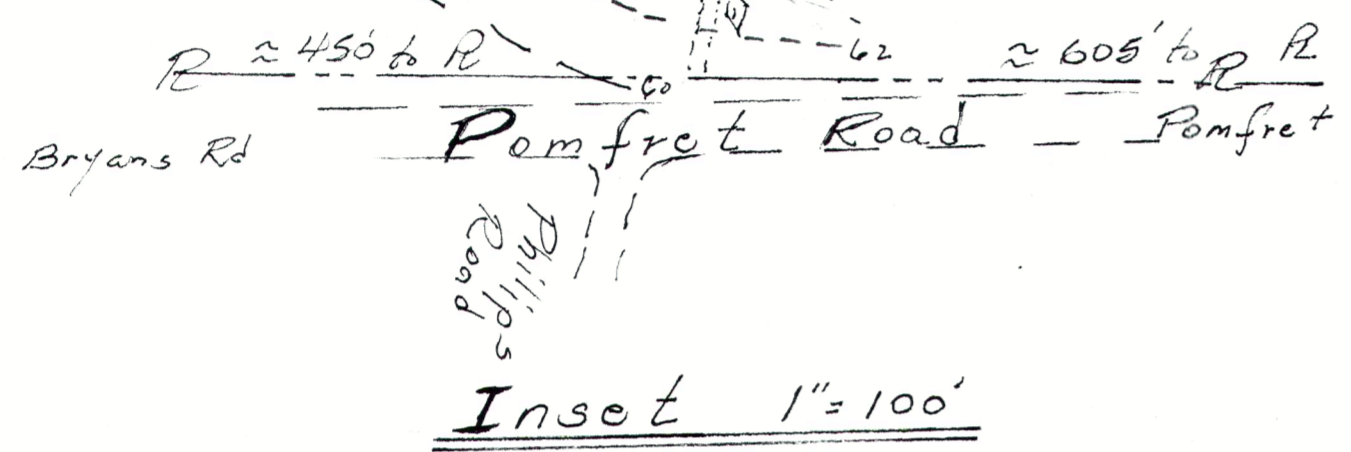 ≈ 450' to ℞ 60 62 ≈ 605' to ℞
Bryans Rd Pomfret Road Pomfret
Phillips
Road
Inset 1"= 100'